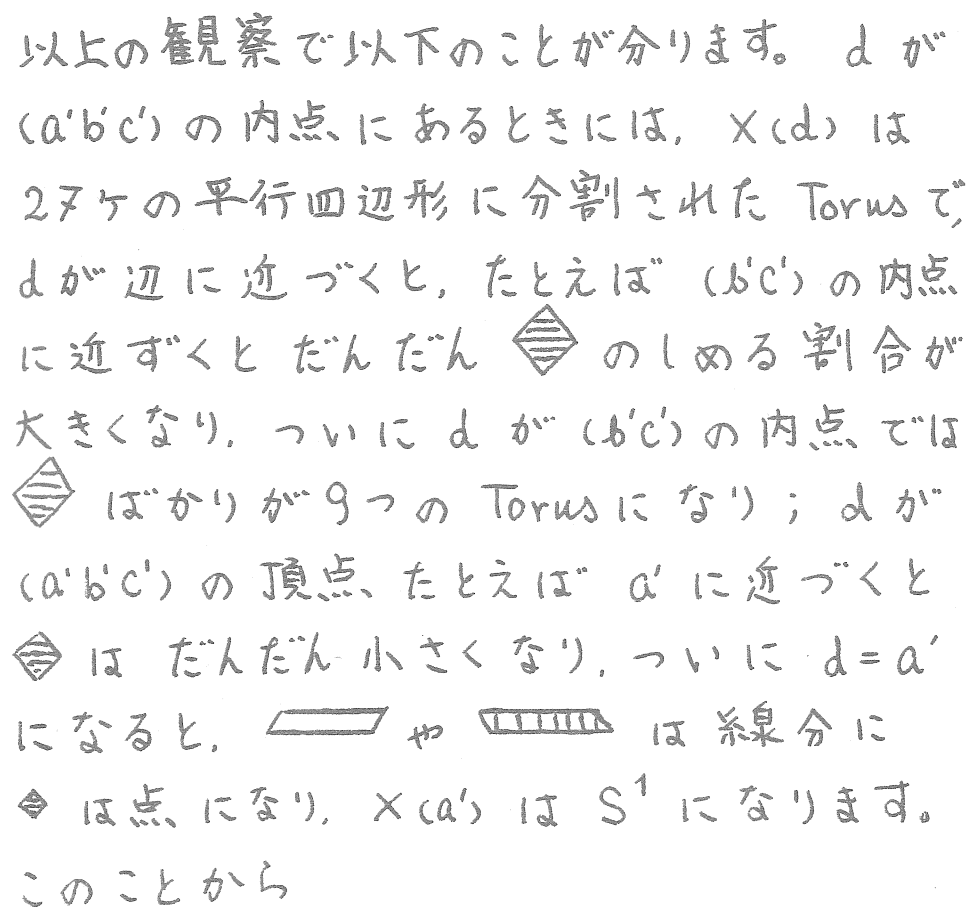 以上の観察で以下のことが分ります。 d が
(a'b'c') の内点にあるときには, X(d) は
27ケの平行四辺形に分割された Torus で,
d が辺に近づくと, たとえば (b'c') の内点
に近ずくとだんだん のしめる割合が
大きくなり, ついに d が (b'c') の内点では
ばかりが9つの Torus になり; d が
(a'b'c') の頂点、たとえば a' に近づくと
は だんだん小さくなり, ついに d = a'
になると, や は線分に
は点になり, X(a') は S¹ になります。
このことから